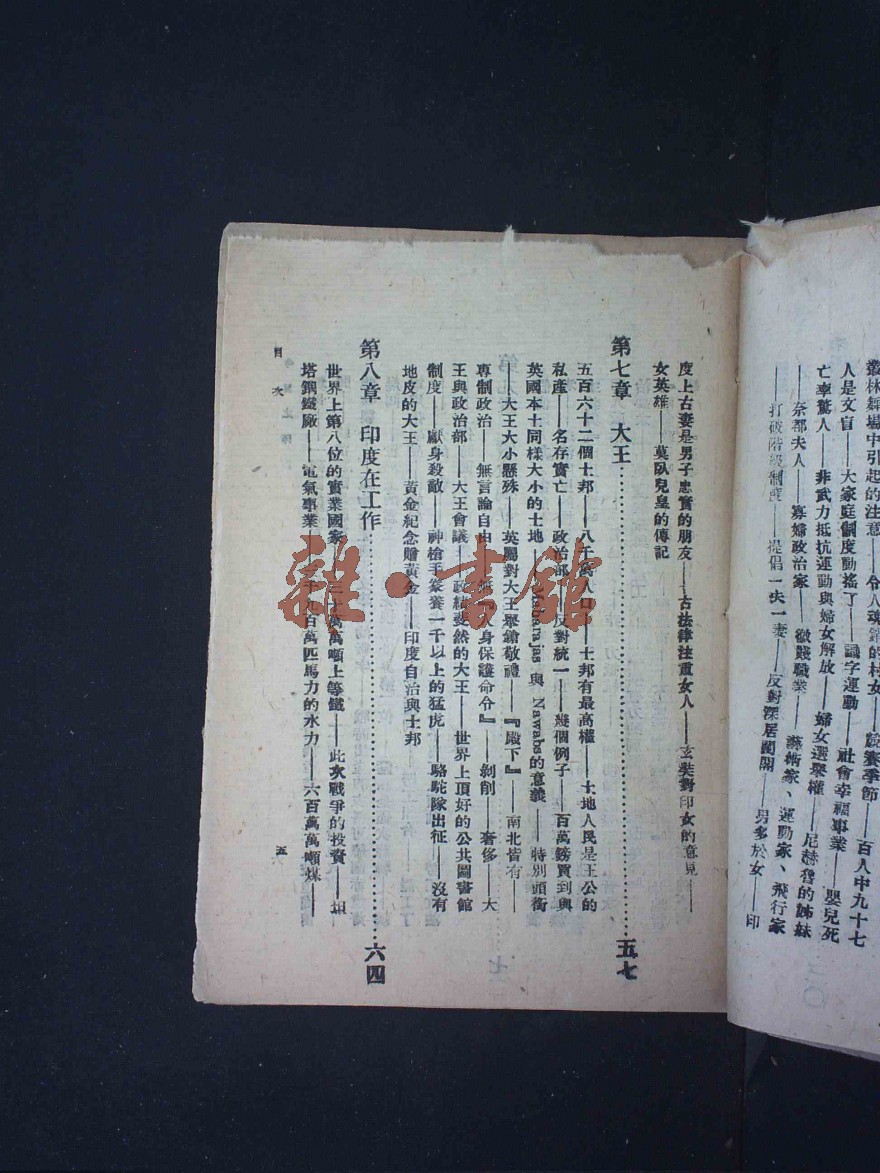 叢林舞場中引起的注意——令人魂銷的村女——競賽季節——百人中九十七
人是文盲——大家庭制度動搖了——識字運動——社會幸福事業——嬰兒死
亡率驚人——非武力抵抗運動與婦女解放——婦女選舉權——尼赫魯的姊妹
——奈都夫人——寡婦政治家——微賤職業——藝術家、運動家、飛行家
——打破階級制度——提倡一夫一妻——反對深居閨閣——男多於女——印
三〇
度上古妻是男子忠實的朋友——古法律注重女人——玄奘對印女的意見——
女英雄——莫臥兒皇的傳記
第七章 大王……五七
五百六十二個土邦——八千萬人口——土邦有最高權——土地人民是王公的
私產——名存實亡——政治部——反對統一——幾個例子——百萬鎊買到與
英國本土同樣大小的土地——Maharajas 與 Nawabs的意義——特別頭銜
——大王大小懸殊——英屬對大王鳴鎗敬禮——『殿下』——南北皆有——
專制政治——無言論自由——無『人身保護命令』——剝削——奢侈——大
王與政治部——大王會議——政績斐然的大王——世界上頂好的公共圖書館
制度——獻身殺敵——神槍手豢養一千以上的猛虎——駱駝隊出征——沒有
地皮的大王——黃金紀念贈黃金——印度自治與土邦
第八章 印度在工作……六四
世界上第八位的實業國家——三十萬萬噸上等鐵——此次戰爭的投資——坦
塔鋼鐵廠——電氣事業——二千九百萬匹馬力的水力——六百萬萬噸煤——
目次
五
雜·書館